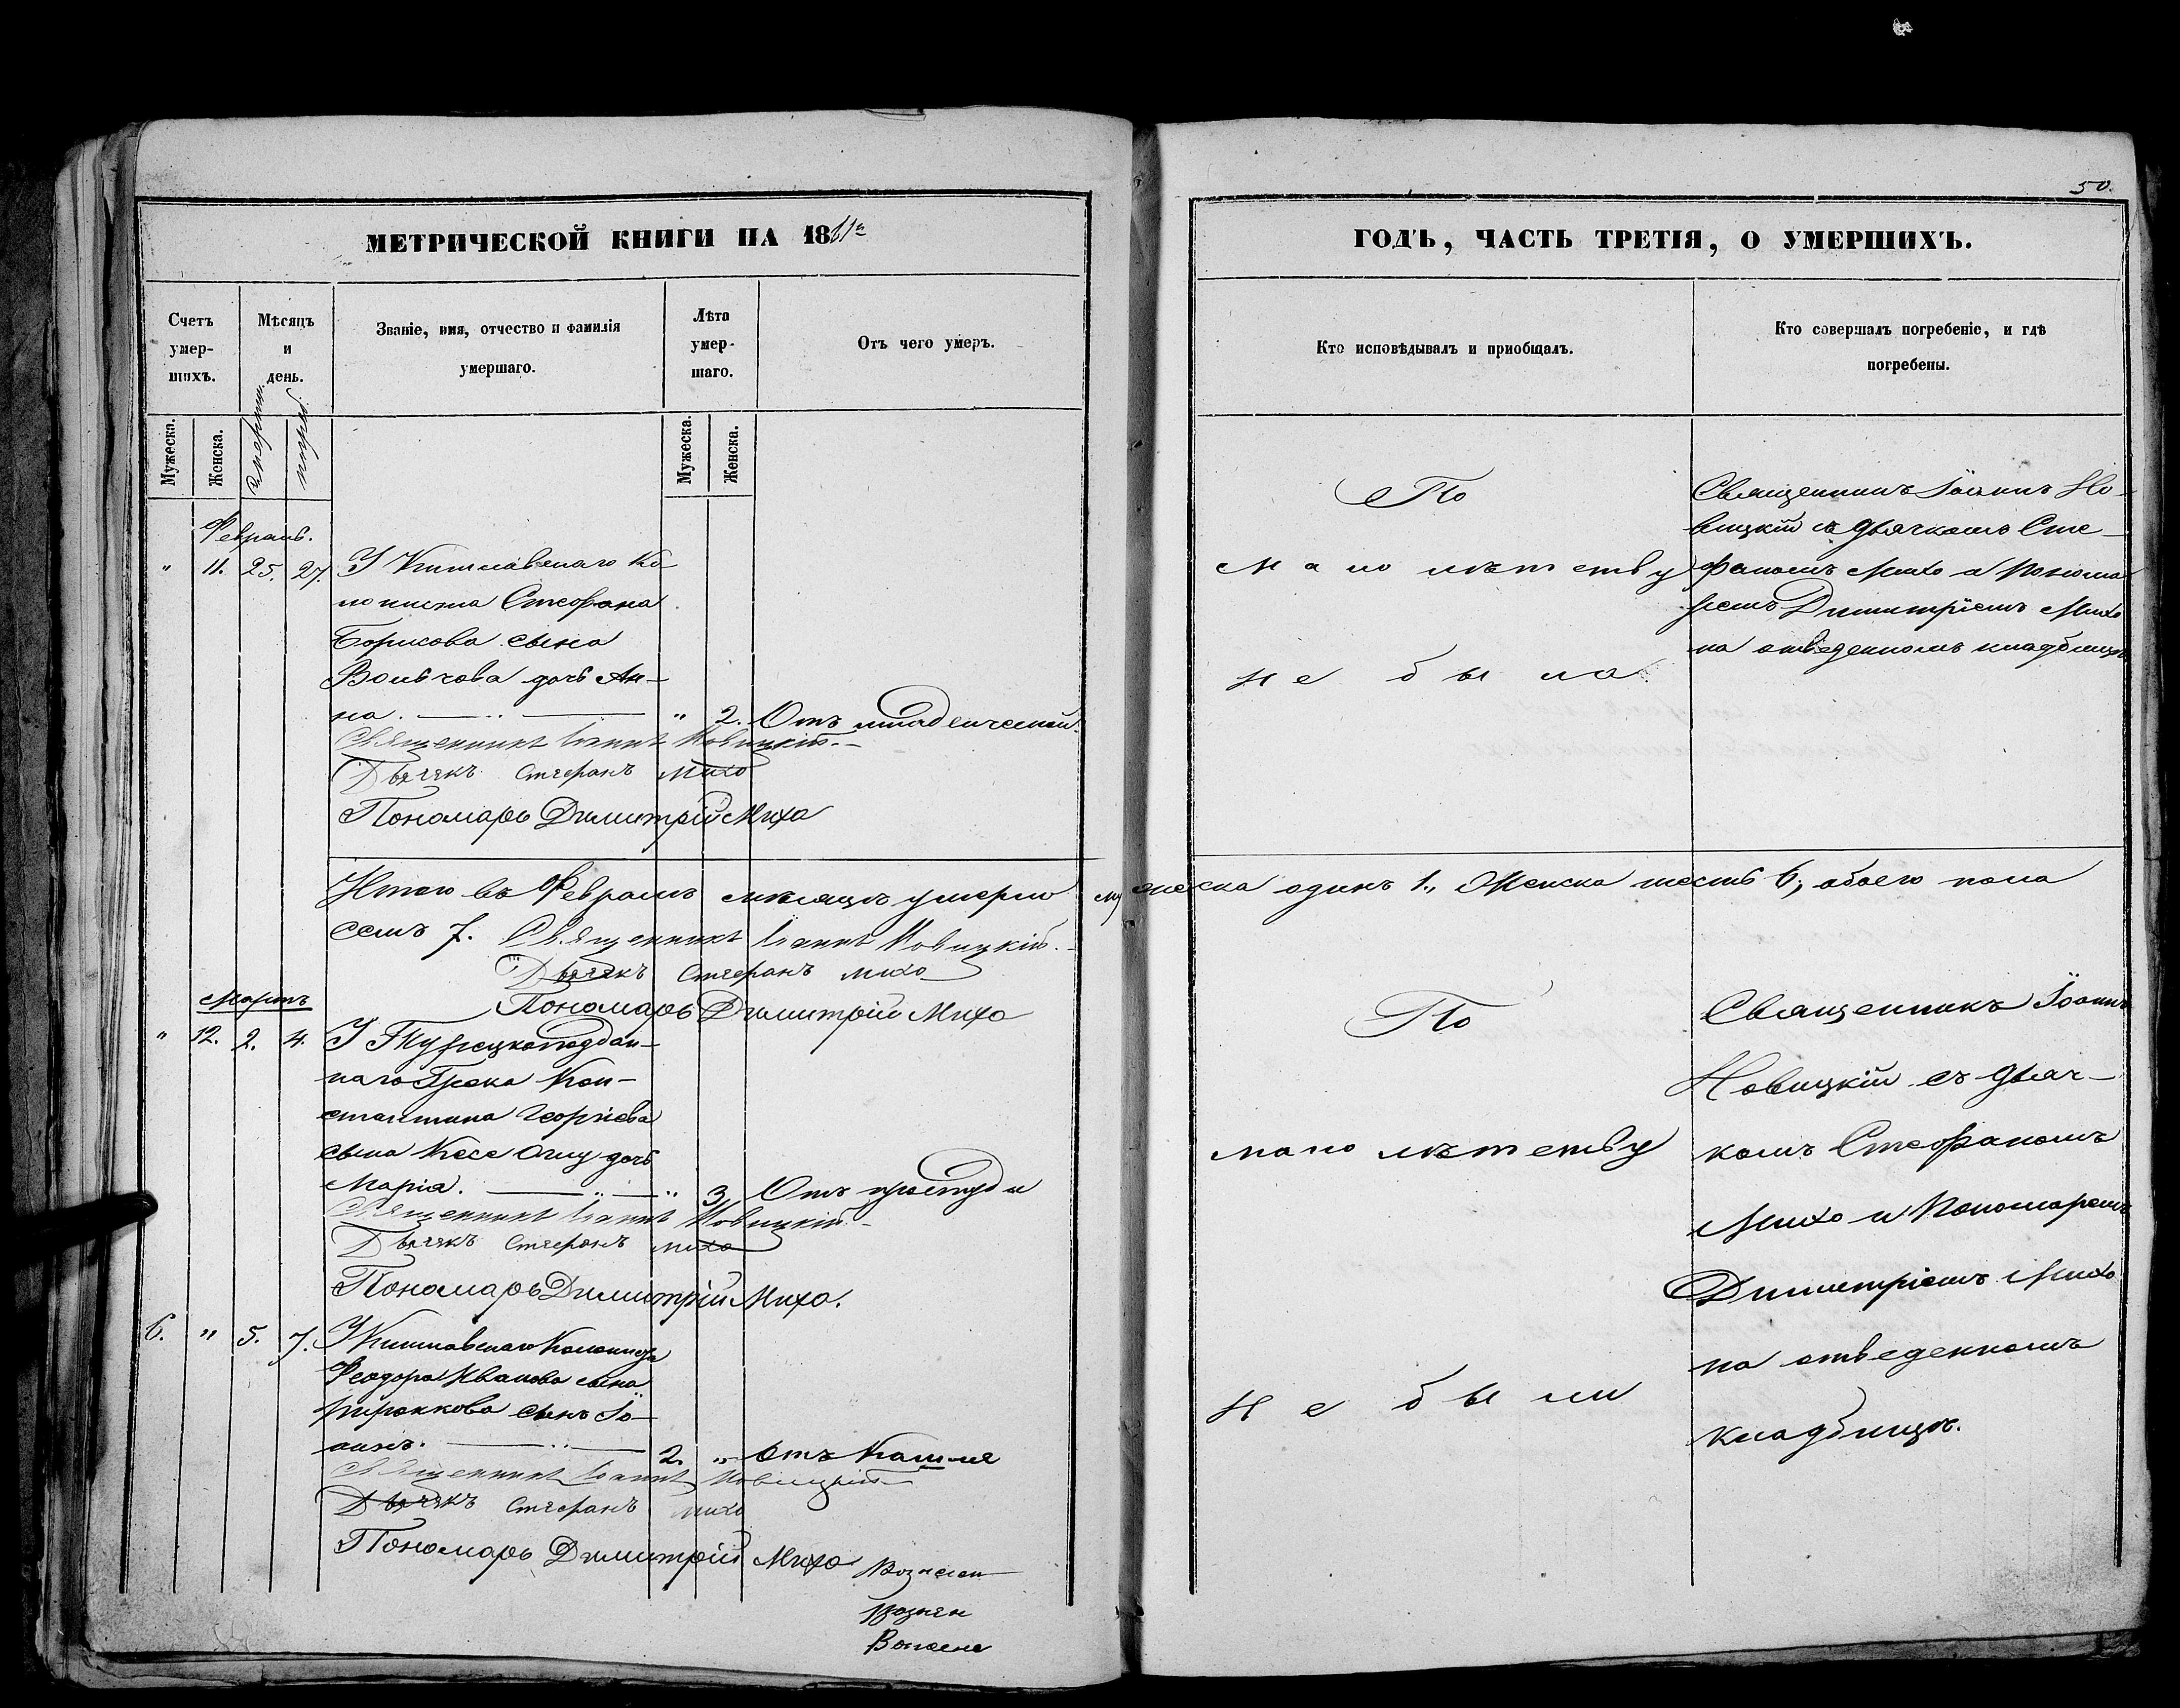 50.
МЕТРИЧЕСКОЙ КНИГИ НА 1861й
ГОДЪ, ЧАСТЬ ТРЕТІЯ, О УМЕРШИХЪ.
Счетъ умер-шихъ.
Мѣсяцъ и день.
Званіе, имя, отчество и фамилія умершаго.
Лѣта умер-шаго.
Отъ чего умеръ.
Кто исповѣдывалъ и приобщалъ.
Кто совершалъ погребеніе, и гдѣ погребены.
Мужеска.
Женска.
Мужеска.
Женска.
Февраль.
" 11. 25. 27. У Кишлавскаго Ко-
лониста Стефана
Борисова сына
Вольчова дочь Ан-
на. " 2. Отъ младенческой.
Священникъ Іоаннъ Новицкій.
Дьячекъ Стефанъ Михо
Пономарь Димитрій Михо
По
малолѣтству
не была
Священникъ Іоаннъ Но-
вицкій съ Дьячкомъ Сте-
фаномъ Михо и Понома
ремъ Димитріемъ Михо
на отведенномъ кладбищѣ
Итого въ Февралѣ мѣсяцѣ умерло мужеска одинъ 1., Женска шесть 6; обоего пола
семь 7. Священникъ Іоаннъ Новицкій.
Дьячекъ Стефанъ Михо
Пономарь Димитрій Михо
Мартъ
" 12. 2. 4. У Турецкоподдан-
наго Грека Кон-
стантина Георгіева
сына Кесе Оглу дочь
Марія. " 3, Отъ простуды
Священникъ Іоаннъ Новицкій
Дьячекъ Стефанъ Михо
Пономарь Димитрій Михо.
6. " 5. 7. У Кишлавскаго Колониста
Феодора Иванова сына
сынъ Іо-
аннъ. 2. " Отъ Кашля
Священникъ Іоаннъ Новицкій
Дьячекъ Стефанъ Михо
Пономарь Димитрій Михо
По
малолѣтству
не были
Священникъ Іоаннъ
Новицкій съ Дьяч-
комъ Стефаномъ
Михо и Пономаремъ
Димитріемъ Михо
на отведенномъ
кладбищѣ.